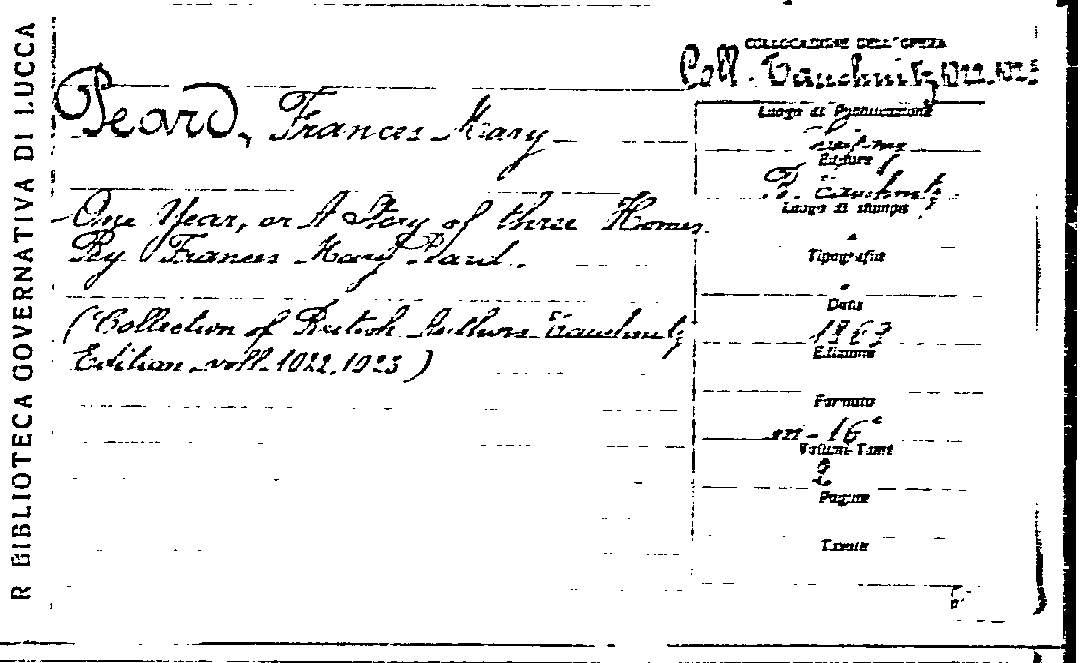 R BIBLIOTECA GOVERNATIVA DI LUCCA
COLLOCAZIONE DELL'OPERA
Coll. Tauchnitz 1022.1023
Peard, Frances Mary
One Year, or A Story of three Homes.
By Frances Mary Peard.
(Collection of British Authors Tauchnitz
Edition voll. 1022.1023)
Luogo di Pubblicazione
Editore
B. Tauchnitz
Luogo di stampa
Tipografia
Data
1869
Edizione
Formato
in-16°
Volumi-Tomi
2
Pagine
Tavole